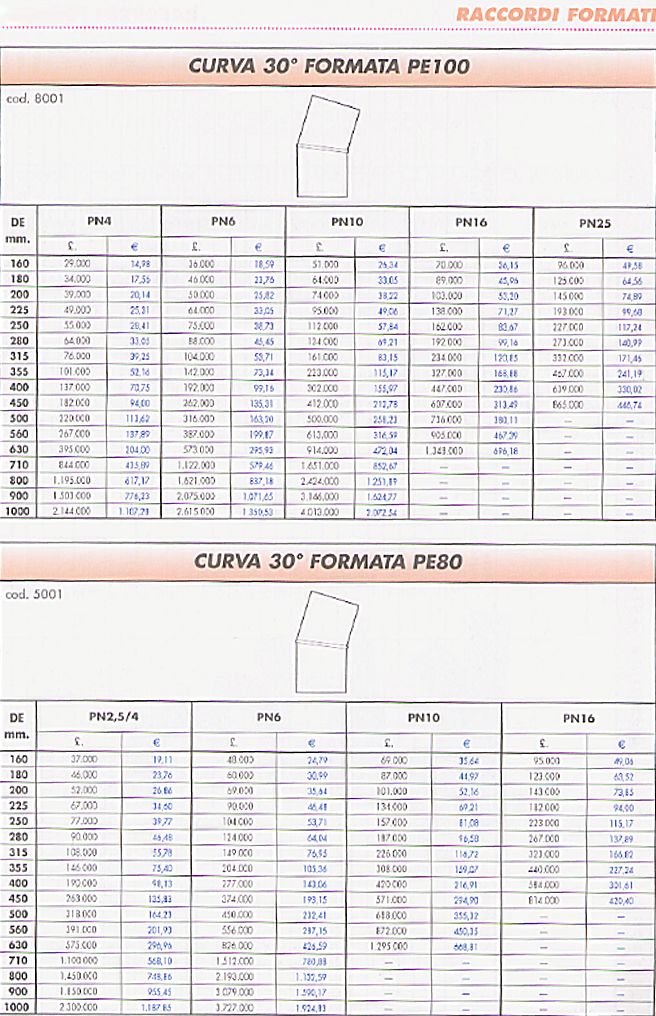 RACCORDI FORMATI
CURVA 30° FORMATA PE100
cod. 8001
DE mm. PN4 PN6 PN10 PN16 PN25
£. € £. € £. € £. € £. €
160 29.000 14,98 36.000 18,59 51.000 26,34 70.000 36,15 96.000 49,58
180 34.000 17,56 46.000 23,76 64.000 33,05 89.000 45,96 125.000 64,56
200 39.000 20,14 50.000 25,82 74.000 38,22 103.000 53,20 145.000 74,89
225 49.000 25,31 64.000 33,05 95.000 49,06 138.000 71,27 193.000 99,68
250 55.000 28,41 75.000 38,73 112.000 57,84 162.000 83,67 227.000 117,24
280 64.000 33,05 88.000 45,45 134.000 69,21 192.000 99,16 273.000 140,99
315 76.000 39,25 104.000 53,71 161.000 83,15 234.000 120,85 332.000 171,46
355 101.000 52,16 142.000 73,34 223.000 115,17 327.000 168,88 467.000 241,19
400 137.000 70,75 192.000 99,16 302.000 155,97 447.000 230,86 639.000 330,02
450 182.000 94,00 262.000 135,31 412.000 212,78 607.000 313,49 865.000 446,74
500 220.000 113,62 316.000 163,20 500.000 258,23 736.000 380,11 – –
560 267.000 137,89 387.000 199,87 613.000 316,59 905.000 467,39 – –
630 395.000 204,00 573.000 295,93 914.000 472,04 1.348.000 696,18 – –
710 844.000 435,89 1.122.000 579,46 1.651.000 852,67 – – – –
800 1.195.000 617,17 1.621.000 837,18 2.424.000 1.251,89 – – – –
900 1.503.000 776,23 2.075.000 1.071,65 3.146.000 1.624,77 – – – –
1000 2.144.000 1.107,28 2.615.000 1.350,53 4.013.000 2.072,54 – – – –
CURVA 30° FORMATA PE80
cod. 5001
DE mm. PN2,5/4 PN6 PN10 PN16
£. € £. € £. € £. €
160 37.000 19,11 48.000 24,79 69.000 35,64 95.000 49,06
180 46.000 23,76 60.000 30,99 87.000 44,93 123.000 63,52
200 52.000 26,86 69.000 35,64 101.000 52,16 143.000 73,85
225 67.000 34,60 90.000 46,48 134.000 69,21 182.000 94,00
250 77.000 39,77 104.000 53,71 157.000 81,08 223.000 115,17
280 90.000 46,48 124.000 64,04 187.000 96,58 267.000 137,89
315 108.000 55,78 149.000 76,95 226.000 116,72 323.000 166,82
355 146.000 75,40 204.000 105,36 308.000 159,07 440.000 227,24
400 190.000 98,13 277.000 143,06 420.000 216,91 584.000 301,61
450 263.000 135,83 374.000 193,15 571.000 294,90 814.000 420,40
500 318.000 164,23 450.000 232,41 688.000 355,32 – –
560 391.000 201,93 556.000 287,15 872.000 450,35 – –
630 575.000 296,96 826.000 426,59 1.295.000 668,81 – –
710 1.100.000 568,10 1.512.000 780,88 – – – –
800 1.450.000 748,86 2.193.000 1.132,59 – – – –
900 1.850.000 955,45 3.079.000 1.590,17 – – – –
1000 2.300.000 1.187,85 3.727.000 1.924,83 – – – –